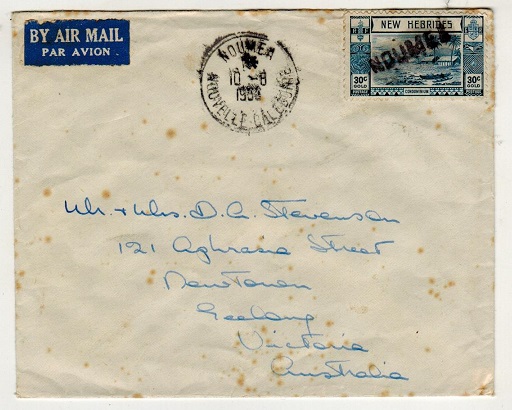 BY AIR MAIL
PAR AVION
NOUMEA
10 - 8
NOUVELLE CALEDONIE
NEW HEBRIDES
NOUMEA
30c
GOLD
CONDOMINIUM
30c
GOLD
Mr. + Mrs. D. G. Stevenson
121 Aphrasia Street
Newtown
Geelong
Victoria
Australia